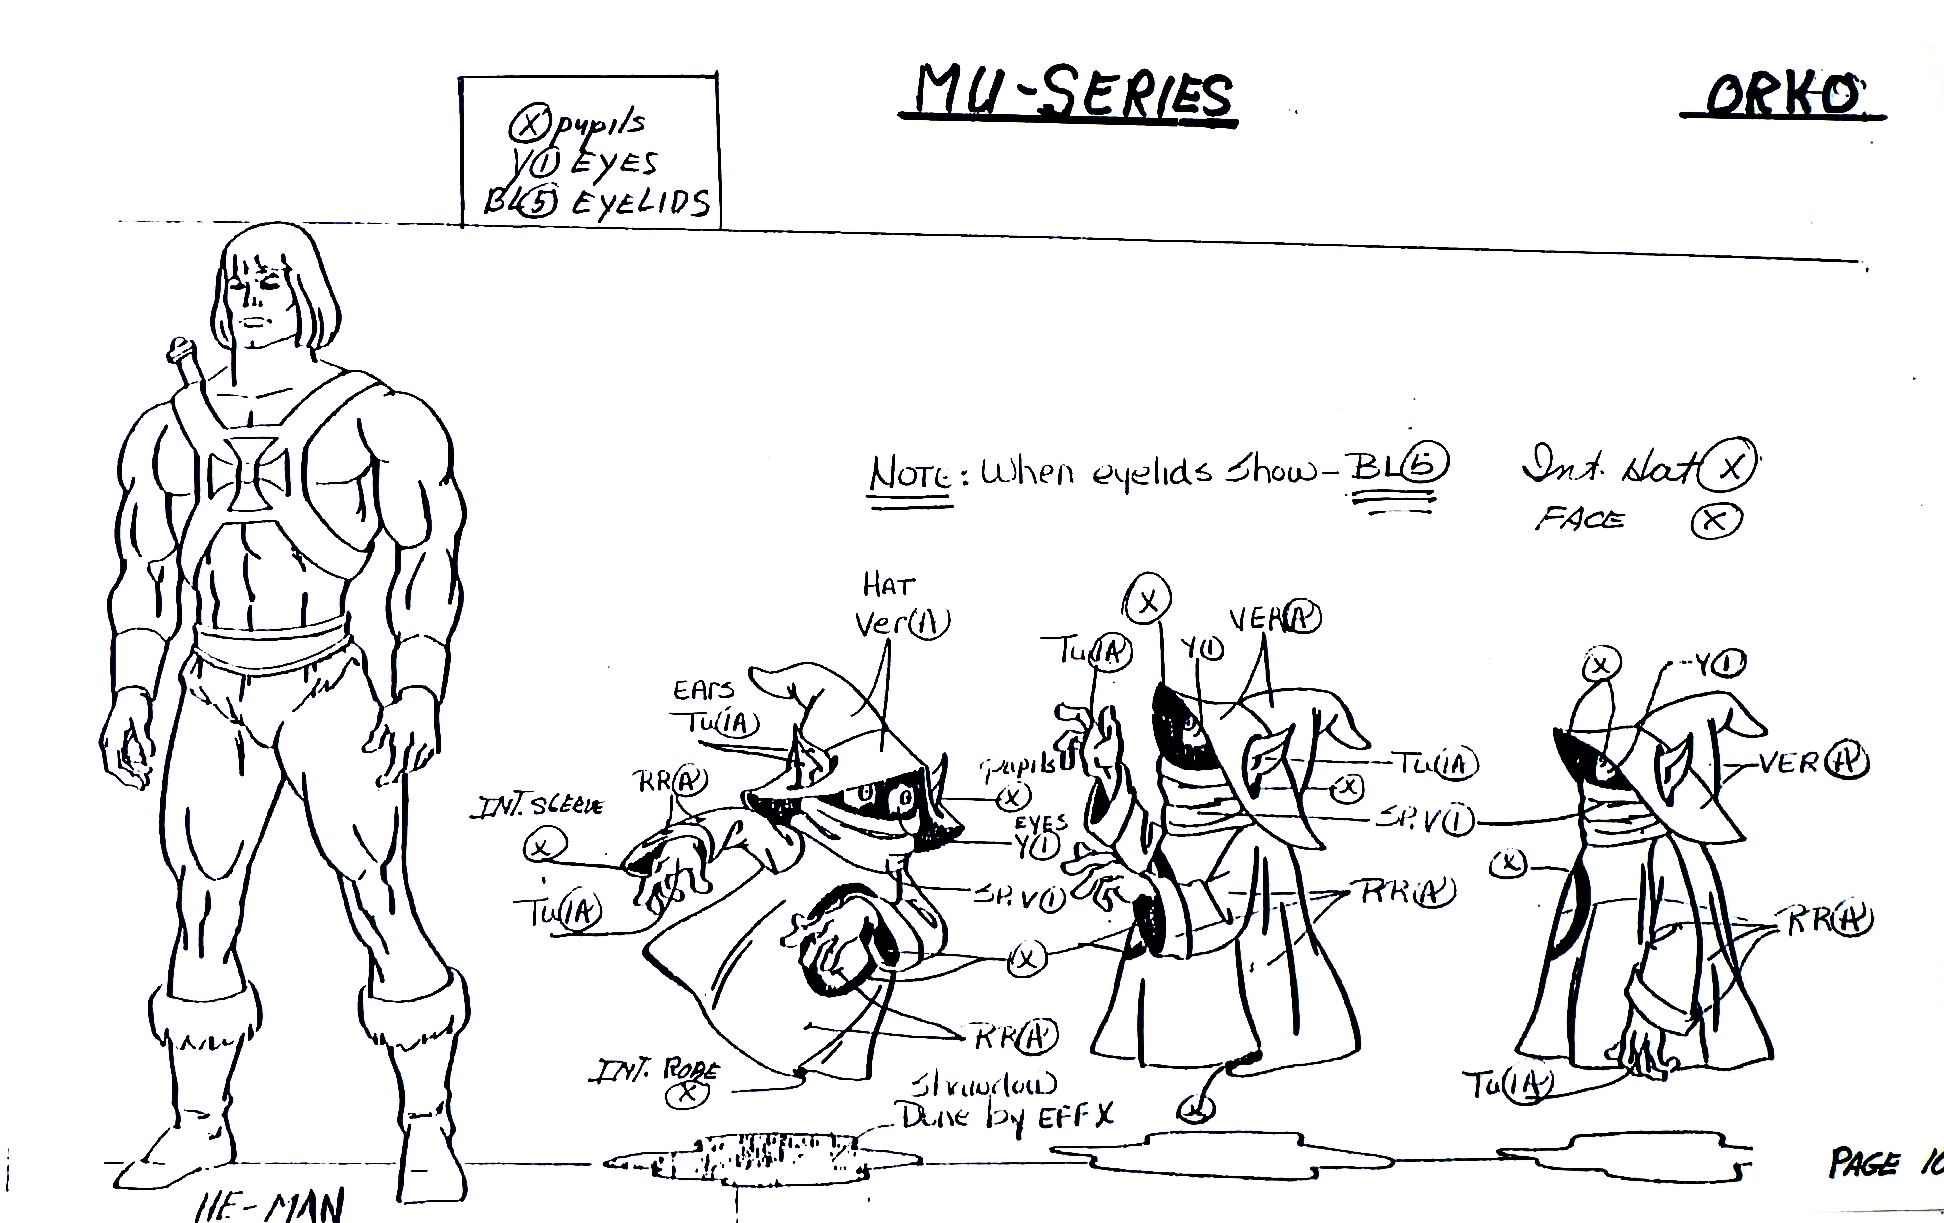 MU-SERIES
ORKO
X pupils
Y1 EYES
BL5 EYELIDS
NOTE: When eyelids show - BL5
Int. Hat X
FACE X
HAT
Ver 1A
EARS
Tu 1A
RR 1A
INT. SLEEVE
X
Tu 1A
pupils
X
EYES
Y1
SP. V1
X
RR 1A
INT. ROBE
X
Shawdow
Done by EFFX
Tu 1A
X
Y1
VER 1A
Tu 1A
X
SP. V1
RR 1A
X
X
Y1
VER 1A
X
RR 1A
Tu 1A
HE-MAN
PAGE 10